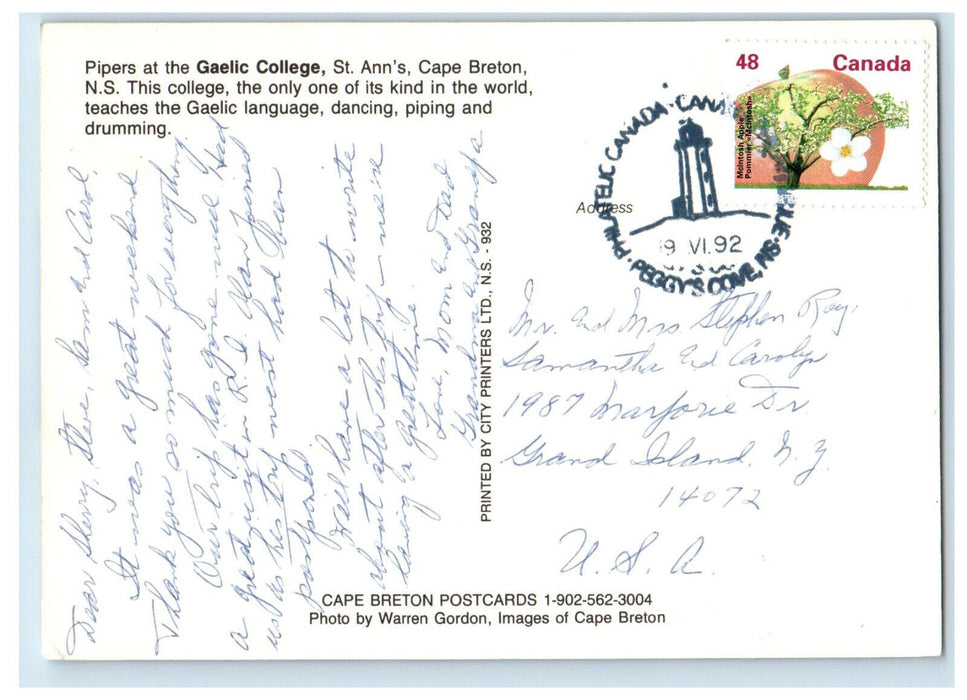 Pipers at the Gaelic College, St. Ann's, Cape Breton,
N.S. This college, the only one of its kind in the world,
teaches the Gaelic language, dancing, piping and
drumming.
48 Canada
McIntosh Apple
Pommier «McIntosh»
PHILATELIC CANADA · CANADA
PEGGY'S COVE, NS
9 VI.92
Address
Dear Sherry, Steve, Sam and Carol
It was a great weekend.
Thank you so much for everything
Our trip has gone well. Had
a great in P.E.I. Alan joined
us as his trip west had been
postponed.
We'll have a lot to write
about after this trip – we're
having a great time.
Love, Mom and Dad
Grandma and Grandpa
PRINTED BY CITY PRINTERS LTD., N.S. - 932
Mr. and Mrs Stephen Ray,
Samantha and Carolyn
1987 Marjorie Dr
Grand Island, N.Y.
14072
U.S.A.
CAPE BRETON POSTCARDS 1-902-562-3004
Photo by Warren Gordon, Images of Cape Breton